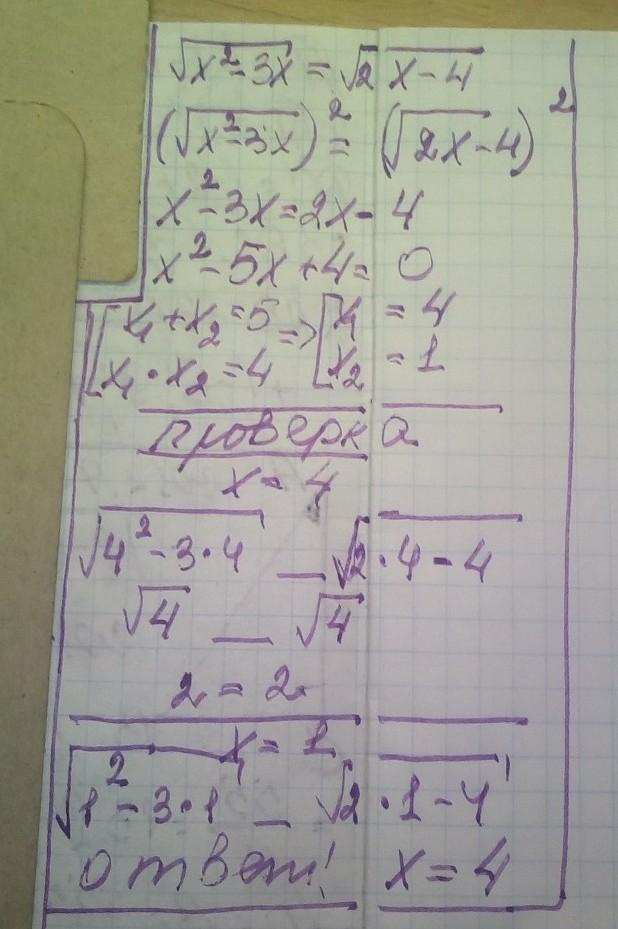 √x²-3x = √2x-4
(√x²-3x)² = (√2x-4)²
x²-3x=2x-4
x²-5x+4=0
[x₁+x₂=5 => [x₁=4
x₁·x₂=4 x₂=1
проверка
x=4
√4²-3·4 _ √2·4-4
√4 _ √4
2=2
x=1
√1²-3·1 _ √2·1-4
ответ! x=4